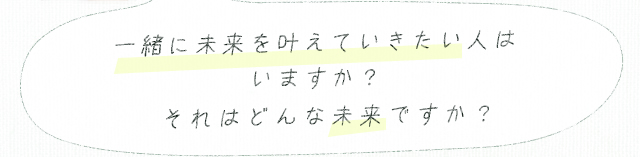 一緒に未来を叶えていきたい人は
いますか？
それはどんな未来ですか？